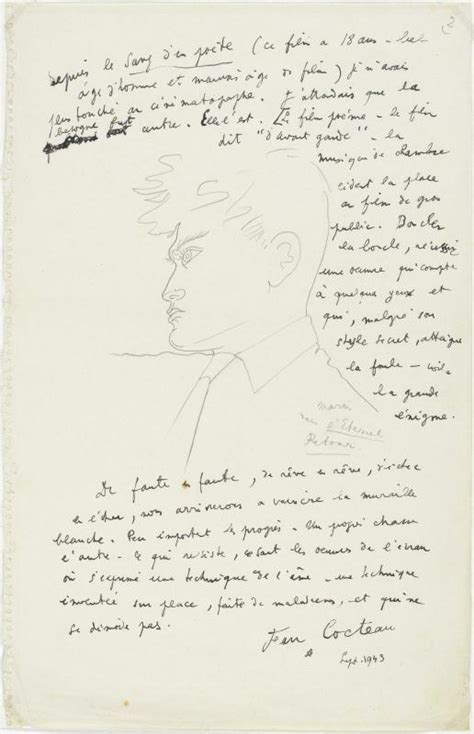 2
Depuis le Sang d'un poète (ce film a 18 ans - bel
âge d'homme et mauvais âge de film) je n'avais
plus touché au cinématographe. J'attendais que la
besogne fut autre. Elle l'est. Le film poème - le film
dit "d'avant garde" - la
musique de chambre
cèdent la place
au film de gros
public. Boucler
la boucle, réussir
une œuvre qui compte
à quelques yeux et
qui, malgré son
style secret, atteigne
la foule - voilà
la grande
énigme.
Marais
l'Eternel
Retour
De faute en faute, de rêve en rêve, d'échec
en échec, nous arriverons à vaincre la muraille
blanche. Peu importent les progrès. Un progrès chasse
l'autre. Ce qui résiste, ce sont les œuvres de l'écran
où s'exprime une technique de l'âme - une technique
inventée sur place, faite de maladresses, et qui ne
se démode pas.
Jean Cocteau
Sept. 1943